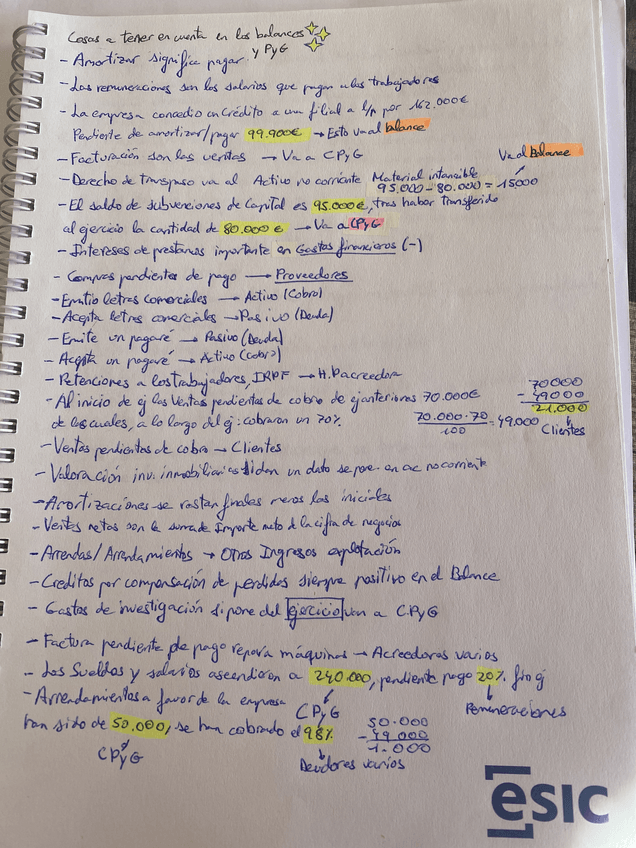 Cosas a tener en cuenta en los balances
y PyG
- Amortizar significa pagar.
- Las remuneraciones son los salarios que pagan a los trabajadores
- La empresa concedio un crédito a una filial a l/p por 162.000€
Pendiente de amortizar/pagar 99.900€ → Esto va al balance
- Facturación son las ventas → Va a CPyG
Va al Balance
- Derecho de transpaso va al Activo no corriente Material intangible
95.000 - 80.000 = 15000
- El saldo de subvenciones de Capital es 95.000€, tras haber transferido
al ejercicio la cantidad de 80.000€ → Va a CPyG
- Intereses de prestamos importante en Gastos financieros (-)
- Compras pendientes de pago → Proveedores
- Emitio letras comerciales → Activo (Cobro)
- Acepta letras comerciales → Pasivo (Deuda)
- Emite un pagaré → Pasivo (Deuda)
- Acepta un pagaré → Activo (cobro)
- Retenciones a los trabajadores, IRPF → H.P acreedora
- Al inicio de ej las Ventas pendientes de cobro de ej anteriores 70.000€
de los cuales, a lo largo del ej. cobraron un 70%.
70.000·70
100
= 49.000
70000
- 49000
21.000
Clientes
- Ventas pendientes de cobro → Clientes
- Valoración inv. inmobiliarias si dan un dato se pone en ac no corriente
- Amortizaciones se restan finales menos las iniciales
- Ventas netas son la suma de Importe neto d la cifra de negocios
- Arriendas/Arrendamientos → Otros Ingresos explotación
- Creditos por compensación de perdidas siempre positivo en el Balance
- Gastos de investigación si pone del ejercicio van a CPyG
- Factura pendiente de pago reparó máquinas → Acreedores varios
- Los Sueldos y salarios ascendieron a 240.000, pendiente pago 20% fin ej
CPyG
Remuneraciones
- Arrendamientos a favor de la empresa
han sido de 50.000, se han cobrado el 98%
CPyG
Deudores varios
50.000
- 49.000
1.000
esic